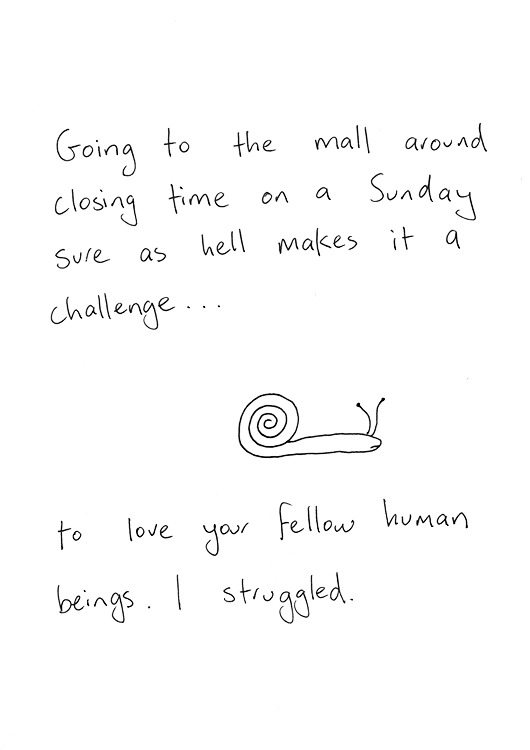 Going to the mall around
closing time on a Sunday
sure as hell makes it a
challenge...
to love your fellow human
beings. I struggled.